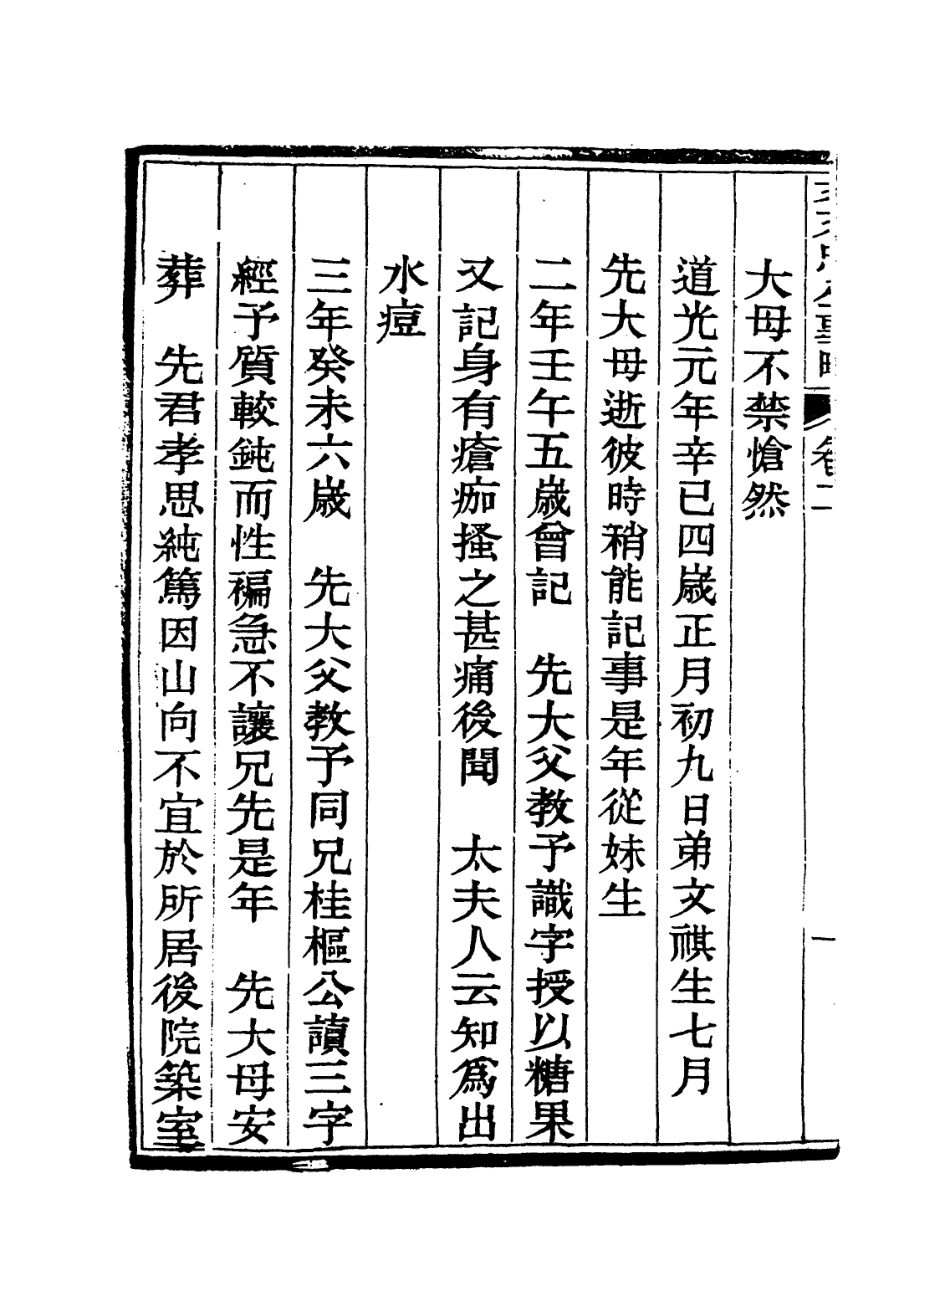 卷二
一
大母不禁愴然
道光元年辛巳四歲正月初九日弟文祺生七月
先大母逝彼時稍能記事是年從妹生
二年壬午五歲曾記　先大父教予識字授以糖果
又記身有瘡痂搔之甚痛後聞　太夫人云知爲出
水痘
三年癸未六歲　先大父教予同兄桂樞公讀三字
經予質較鈍而性褊急不讓兄先是年　先大母安
葬　先君孝思純篤因山向不宜於所居後院築室